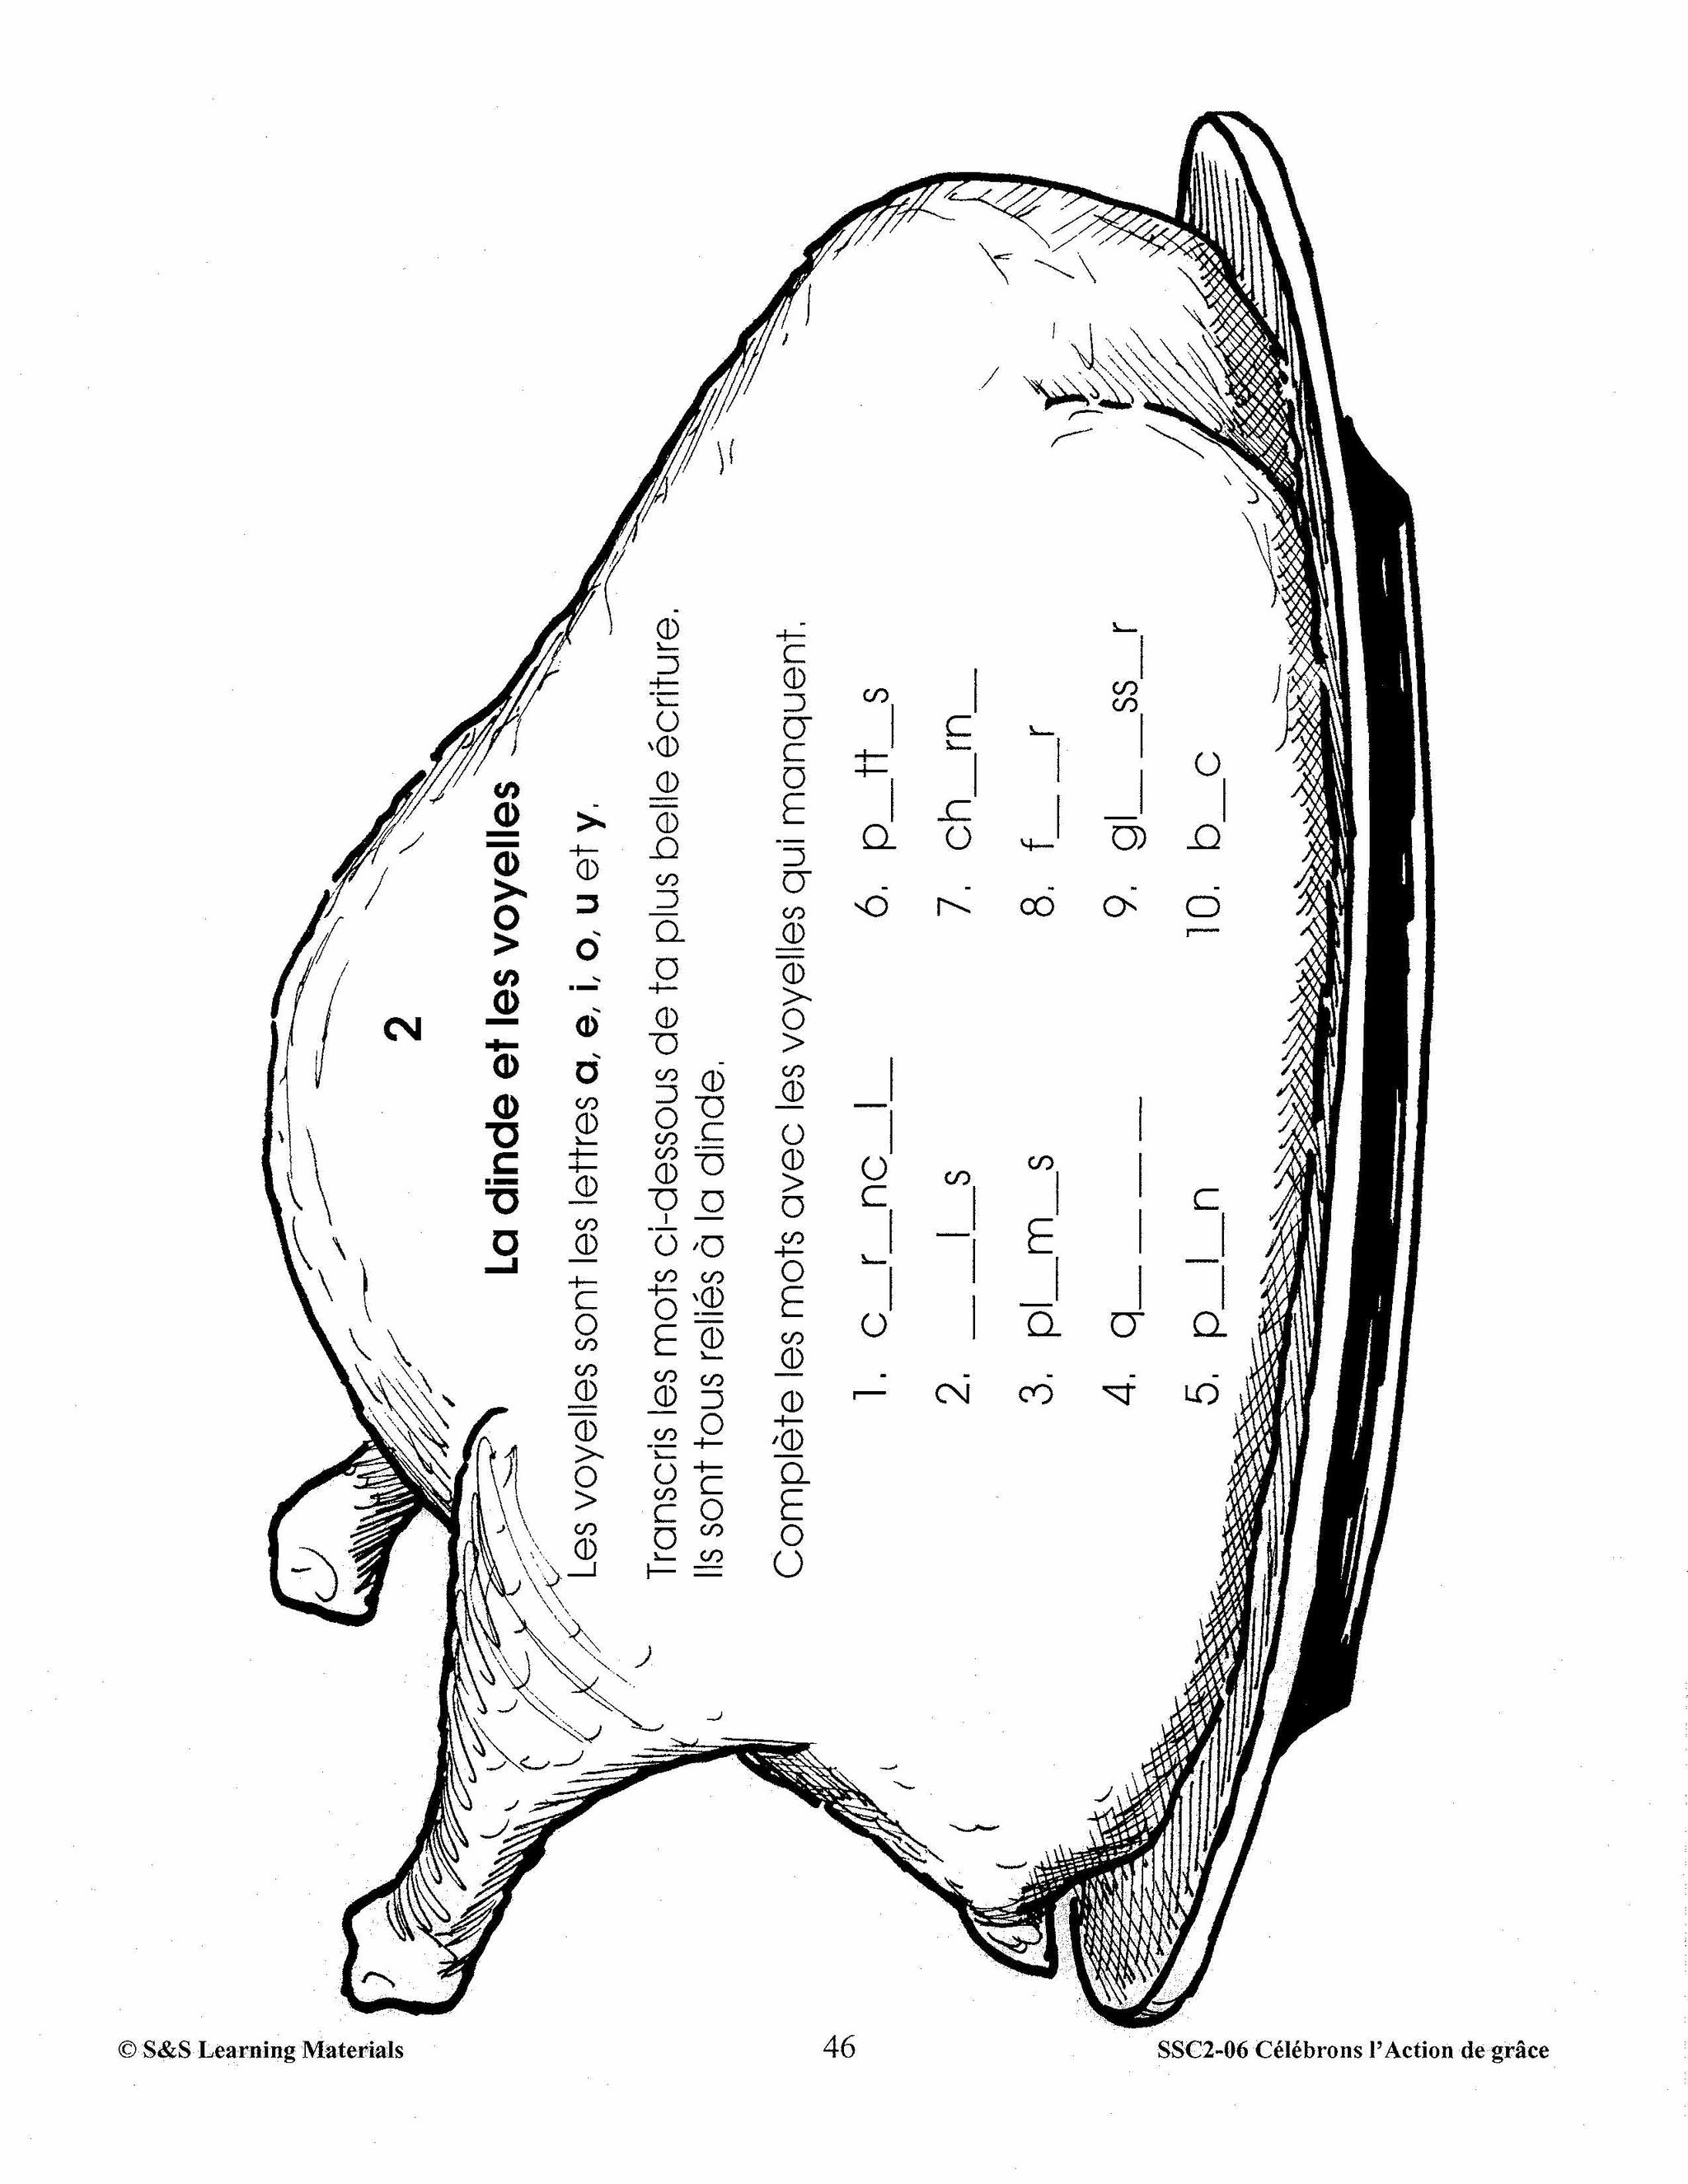 2
La dinde et les voyelles
Les voyelles sont les lettres a, e, i, o, u et y.
Transcris les mots ci-dessous de ta plus belle écriture.
Ils sont tous reliés à la dinde.
Complète les mots avec les voyelles qui manquent.
1. c_r_nc_l_ 6. p_tt_s
2. _ _l_s 7. ch_rn_
3. pl_m_s 8. f_ _r
4. q_ _ _ _ 9. gl_ _ss_r
5. p_l_n 10. b_c
© S&S Learning Materials 46 SSC2-06 Célébrons l'Action de grâce